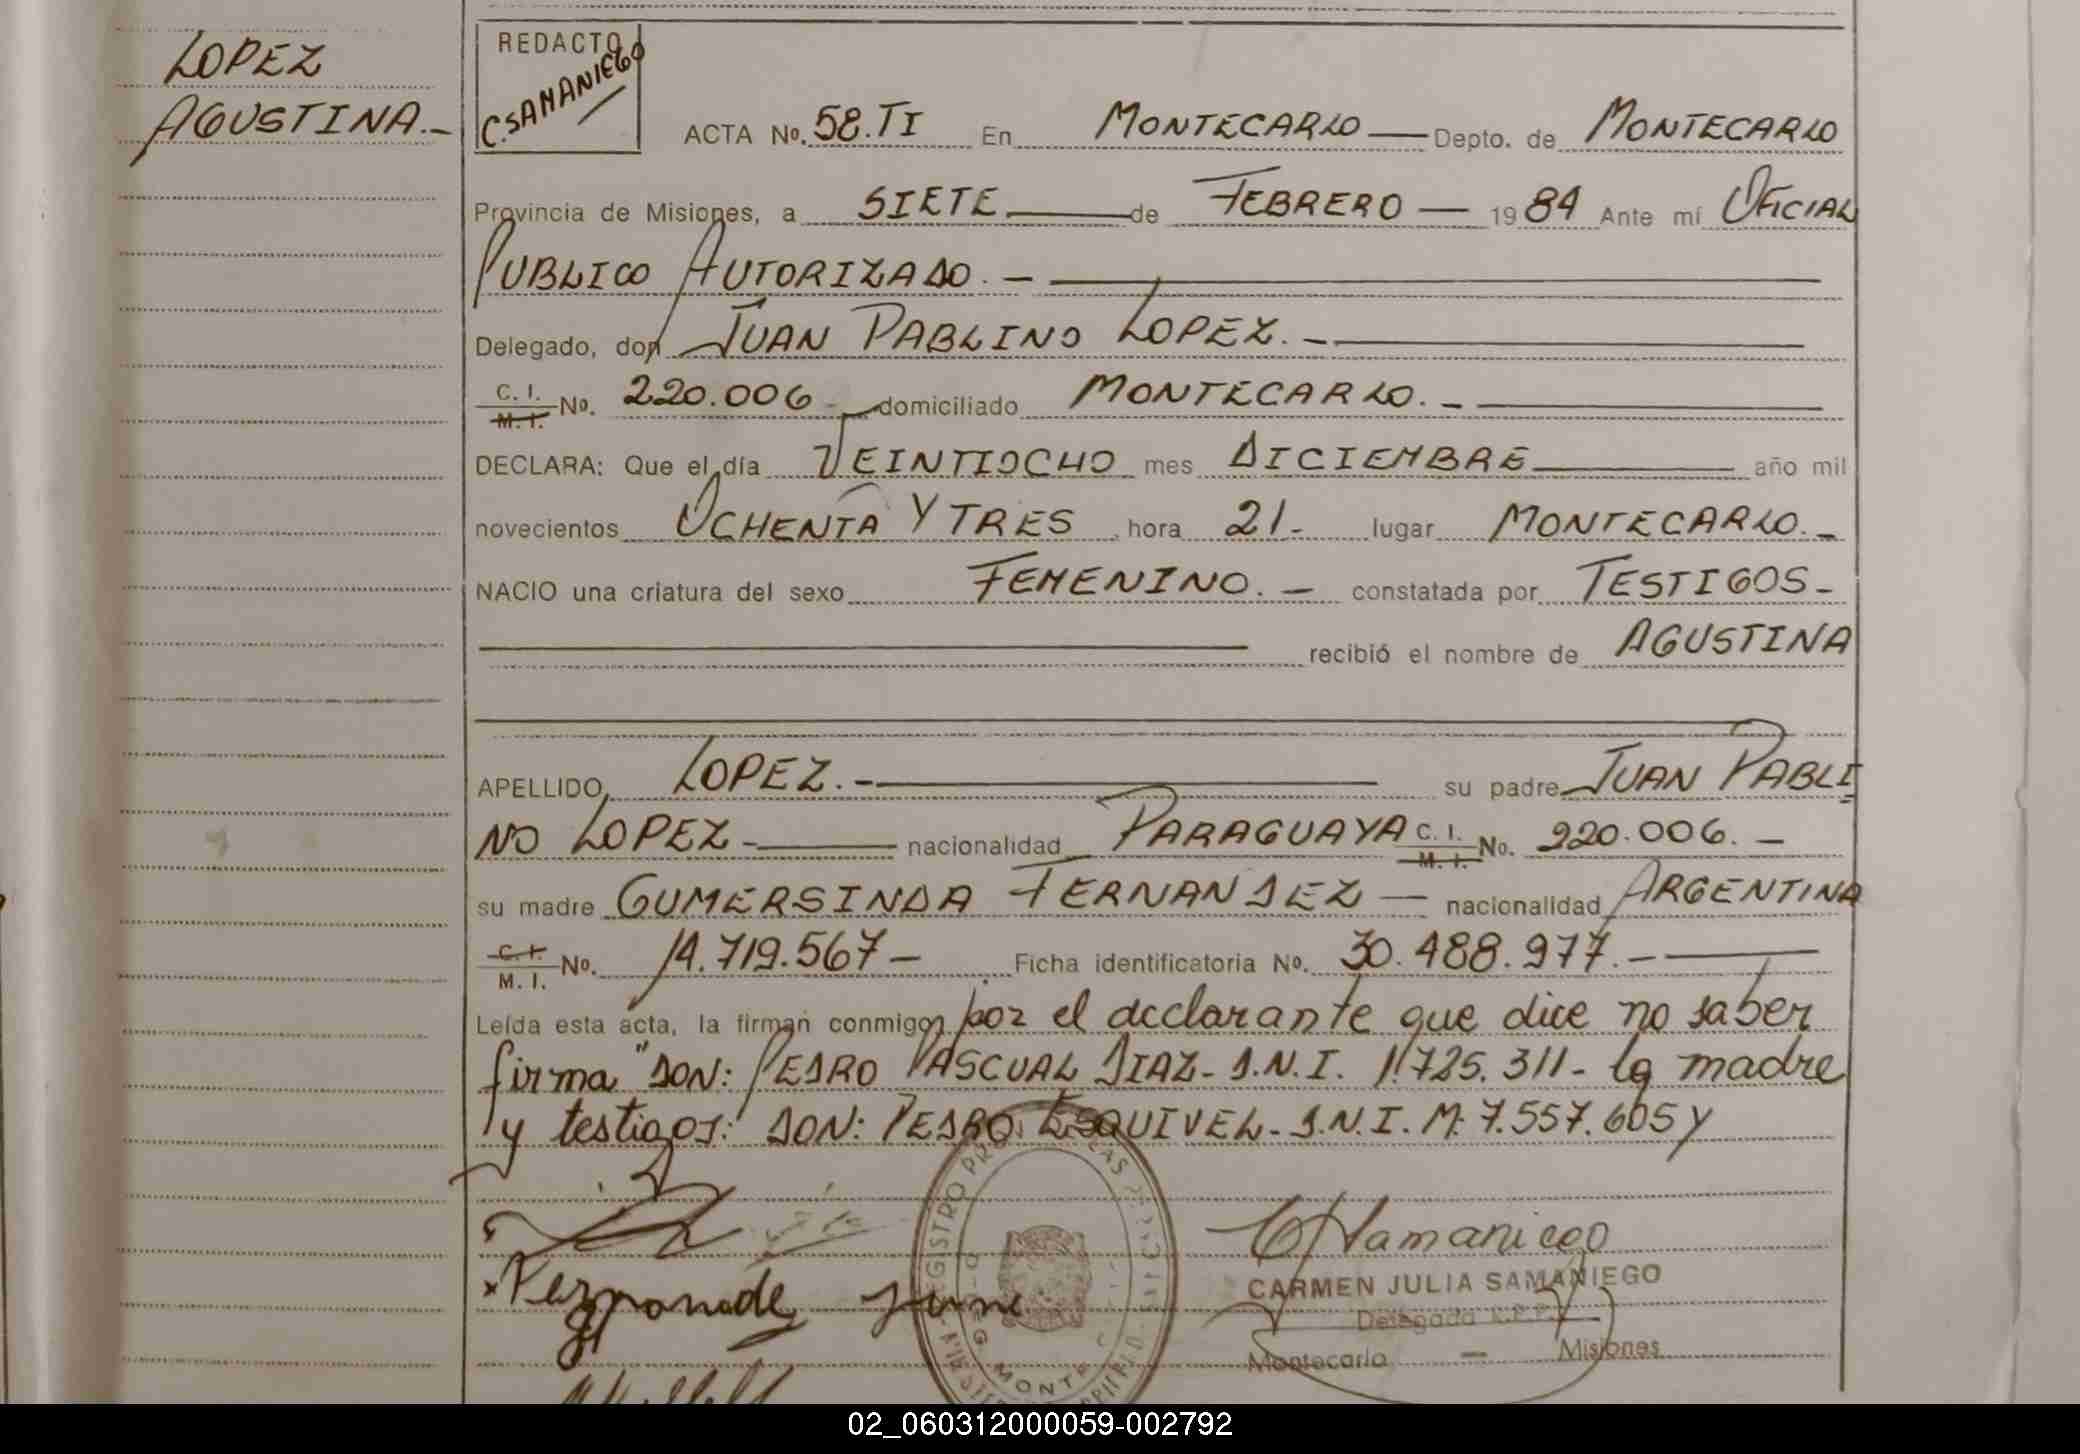 LOPEZ
AGUSTINA.-
REDACTO
C. SAMANIEGO
ACTA No. 58.TI En MONTECARLO — Depto. de MONTECARLO
Provincia de Misiones, a SIETE — de FEBRERO — 1984 Ante mí OFICIAL
PUBLICO AUTORIZADO. —
Delegado, don JUAN PABLINO LOPEZ. —
C. I. M. I. No. 220.006 — domiciliado MONTECARLO. —
DECLARA: Que el día VEINTIOCHO mes DICIEMBRE — año mil
novecientos OCHENTA Y TRES, hora 21- lugar MONTECARLO. -
NACIO una criatura del sexo FEMENINO. — constatada por TESTIGOS -
recibió el nombre de AGUSTINA
APELLIDO LOPEZ. — su padre JUAN PABLI
NO LOPEZ — nacionalidad PARAGUAYA C. I. M. I. No. 220.006. —
su madre GUMERSINDA FERNANDEZ — nacionalidad ARGENTINA
C. I. M. I. No. 14.719.567 — Ficha identificatoria No. 30.488.977. —
Leída esta acta, la firman conmigo, por el declarante que dice no saber
firma" DON: PEDRO PASCUAL DIAZ - D.N.I. 11.725.311 - la madre
y testigos: DON: PEDRO ESQUIVEL - D.N.I. M. 7.557.605 y
CSamaniego
CARMEN JULIA SAMANIEGO
Delegada R.P.P.
Montecarlo — Misiones
REGISTRO MONTE
02_060312000059-002792